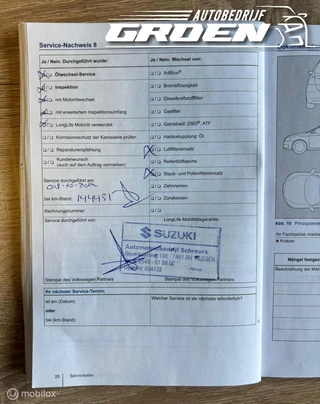 AUTOBEDRIJF
GROEN
Service-Nachweis 8
Ja / Nein. Durchgeführt wurde:
Ölwechsel-Service
Inspektion
mit Motorölwechsel
mit erweitertem Inspektionsumfang
LongLife Motoröl verwendet
Korrosionsschutz der Karosserie prüfen
Reparaturempfehlung
Kundenwunsch
(auch auf dem Auftrag vermerken)
Service durchgeführt am:
bei km-Stand: 144451
Rechnungsnummer:
Service durchgeführt von:
Ja / Nein. Wechsel von:
AdBlue®
Bremsflüssigkeit
Dieselkraftstofffilter
Gasfilter
Getriebeöl: DSG®, ATF
Haldexkupplung: Öl
Luftfiltereinsatz
Reifenfüllflasche
Staub- und Pollenfiltereinsatz
Zahnriemen
Zündkerzen
LongLife Mobilitätsgarantie:
SUZUKI
Automobielbedrijf Schreurs
Stempel des Volkswagen Partners.
Stempel des Volkswagen Partners.
Ihr nächster Service-Termin:
ist am (Datum):
oder
bei (km-Stand):
Welcher Service ist als nächster erforderlich?
20
Serviceplan
Abb. 10
Ihr Fachseiten
Kratzer
Mängel festges
Beschreibung der Män
© mobilox